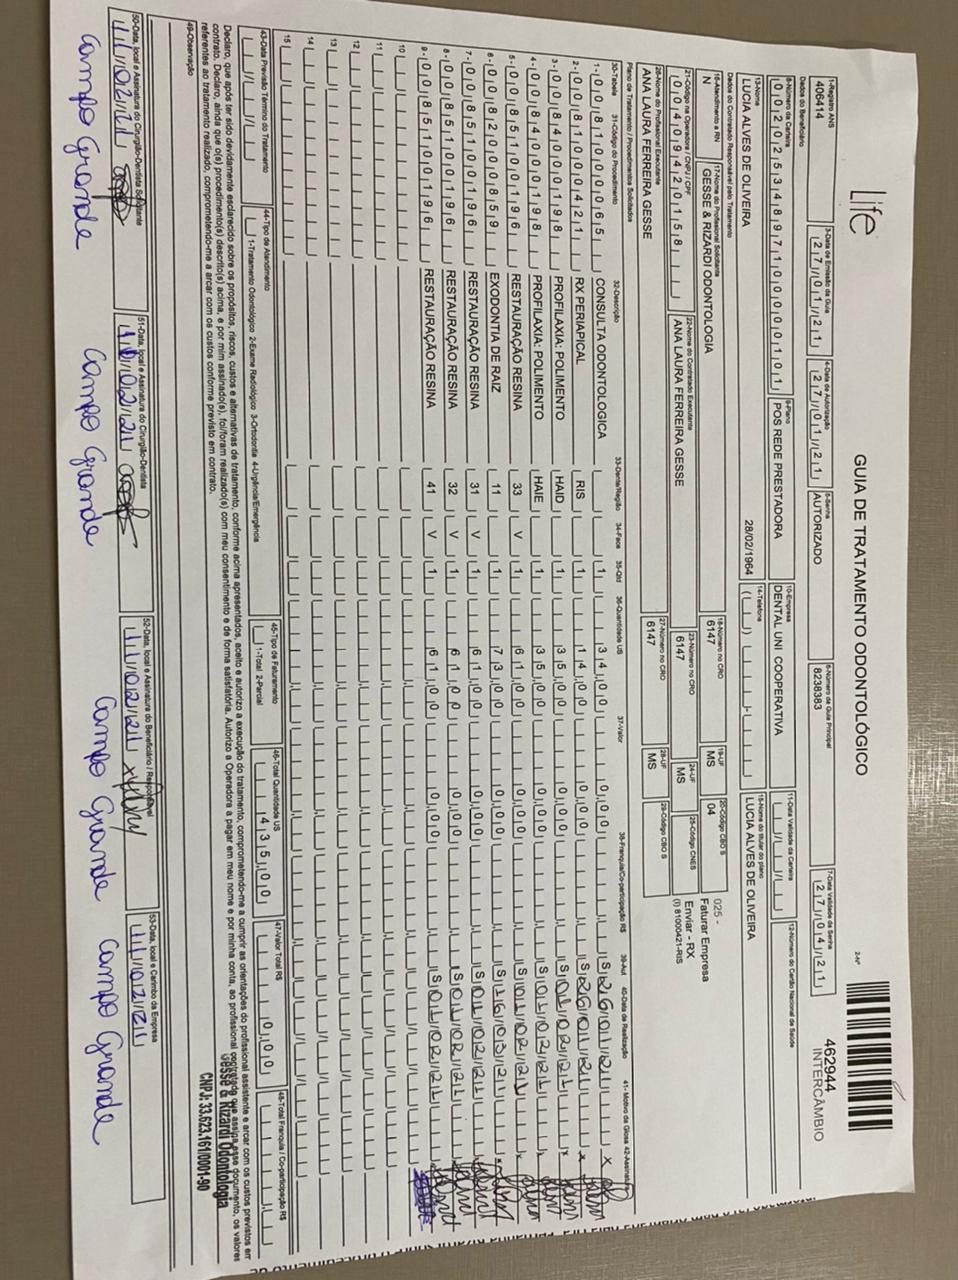 Life
GUIA DE TRATAMENTO ODONTOLÓGICO
2-Nº
462944
INTERCÂMBIO
1-Registro ANS 3-Data de Emissão da Guia 4-Data de Autorização 5-Senha 6-Número da Guia Principal 7-Data Validade da Senha
406414 27/01/21 27/01/21 AUTORIZADO 8238383 27/04/21
Dados do Beneficiário
8-Número da Carteira 9-Plano 10-Empresa 11-Data Validade da Carteira 12-Número do Cartão Nacional de Saúde
00202534897100000101 POS REDE PRESTADORA DENTAL UNI COOPERATIVA
13-Nome 14-Telefone 15-Nome do titular do plano
LUCIA ALVES DE OLIVEIRA 28/02/1964 LUCIA ALVES DE OLIVEIRA
Dados do Contratado Responsável pelo Tratamento
16-Atendimento a RN 17-Nome do Profissional Solicitante 18-Número no CRO 19-UF 20-Código CBO S
N GESSE & RIZARDI ODONTOLOGIA 6147 MS 04
025 -
Faturar Empresa
Enviar - RX
(I) 81000421-RIS
21-Código na Operadora / CNPJ / CPF 22-Nome do Contratado Executante 23-Número no CRO 24-UF 25-Código CNES
00409420158 ANA LAURA FERREIRA GESSE 6147 MS
26-Nome do Profissional Executante 27-Número no CRO 28-UF 29-Código CBO S
ANA LAURA FERREIRA GESSE 6147 MS
Plano de Tratamento / Procedimentos Solicitados
30-Tabela 31-Código do Procedimento 32-Descrição 33-Dente/Região 34-Face 35-Qtd 36-Quantidade US 37-Valor 38-Franquia/Co-participação R$ 39-Aut 40-Data de Realização 41- Motivo da Glosa 42-Assinatura
1- 00 81000065 CONSULTA ODONTOLOGICA 1 34,00 0,00 S 26/01/21
2- 00 81000421 RX PERIAPICAL RIS 1 14,00 0,00 S 26/01/21
3- 00 84000198 PROFILAXIA: POLIMENTO HAID 1 35,00 0,00 S 01/02/21
4- 00 84000198 PROFILAXIA: POLIMENTO HAIE 1 35,00 0,00 S 01/02/21
5- 00 85100196 RESTAURAÇÃO RESINA 33 V 1 61,00 0,00 S 01/02/21
6- 00 82000859 EXODONTIA DE RAIZ 11 1 73,00 0,00 S 26/03/21
7- 00 85100196 RESTAURAÇÃO RESINA 31 V 1 61,00 0,00 S 01/02/21
8- 00 85100196 RESTAURAÇÃO RESINA 32 V 1 61,00 0,00 S 01/02/21
9- 00 85100196 RESTAURAÇÃO RESINA 41 V 1 61,00 0,00 S 01/02/21
10
11
12
13
14
15
43-Data Previsão Término do Tratamento 44-Tipo de Atendimento 45-Tipo de Faturamento 46-Total Quantidade US 47-Valor Total R$ 48-Total Franquia / Co-participação R$
1-Tratamento Odontológico 2-Exame Radiológico 3-Ortodontia 4-Urgência/Emergência 1-Total 2-Parcial 435,00 0,00
Declaro, que após ter sido devidamente esclarecido sobre os propósitos, riscos, custos e alternativas de tratamento, conforme acima apresentados, aceito e autorizo a execução do tratamento, comprometendo-me a cumprir as orientações do profissional assistente e arcar com os custos previstos em
contrato. Declaro, ainda que o(s) procedimento(s) descrito(s) acima, e por mim assinado(s), foi/foram realizado(s) com meu consentimento e de forma satisfatória. Autorizo a Operadora a pagar em meu nome e por minha conta, ao profissional contratado que assina esse documento, os valores
referentes ao tratamento realizado, comprometendo-me a arcar com os custos conforme previsto em contrato.
49-Observação
Gesse & Rizardi Odontologia
CNPJ: 33.623.161/0001-90
50-Data, local e Assinatura do Cirurgião-Dentista Solicitante 51-Data, local e Assinatura do Cirurgião-Dentista 52-Data, local e Assinatura do Beneficiário / Responsável 53-Data, local e Carimbo da Empresa
11/02/21 11/02/21 11/02/21
Campo Grande Campo Grande Campo Grande Campo Grande